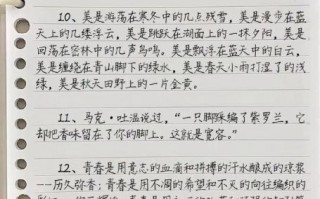 10、美是海荡在寒冬中的几点残雪，美是漫步在蓝
天上的几缕浮云，美是跳跃在湖面上的一抹夕阳，美是
回荡在密林中的几声鸟鸣。美是飘浮在蓝天中的白云，
美是缠绕在青山脚下的绿水，美是春天小雨打湿了的浅
绿，美是秋天田野上的一片金黄。
11、马克·吐温说过，“一只脚踩扁了紫罗兰，它
却把香味留在了你的脚上。这就是宽容。”
12、青春是用意志的血滴和拼搏的汗水酿成的琼浆
——历久弥香；青春是用不凋的希望和不灭的向往编织的